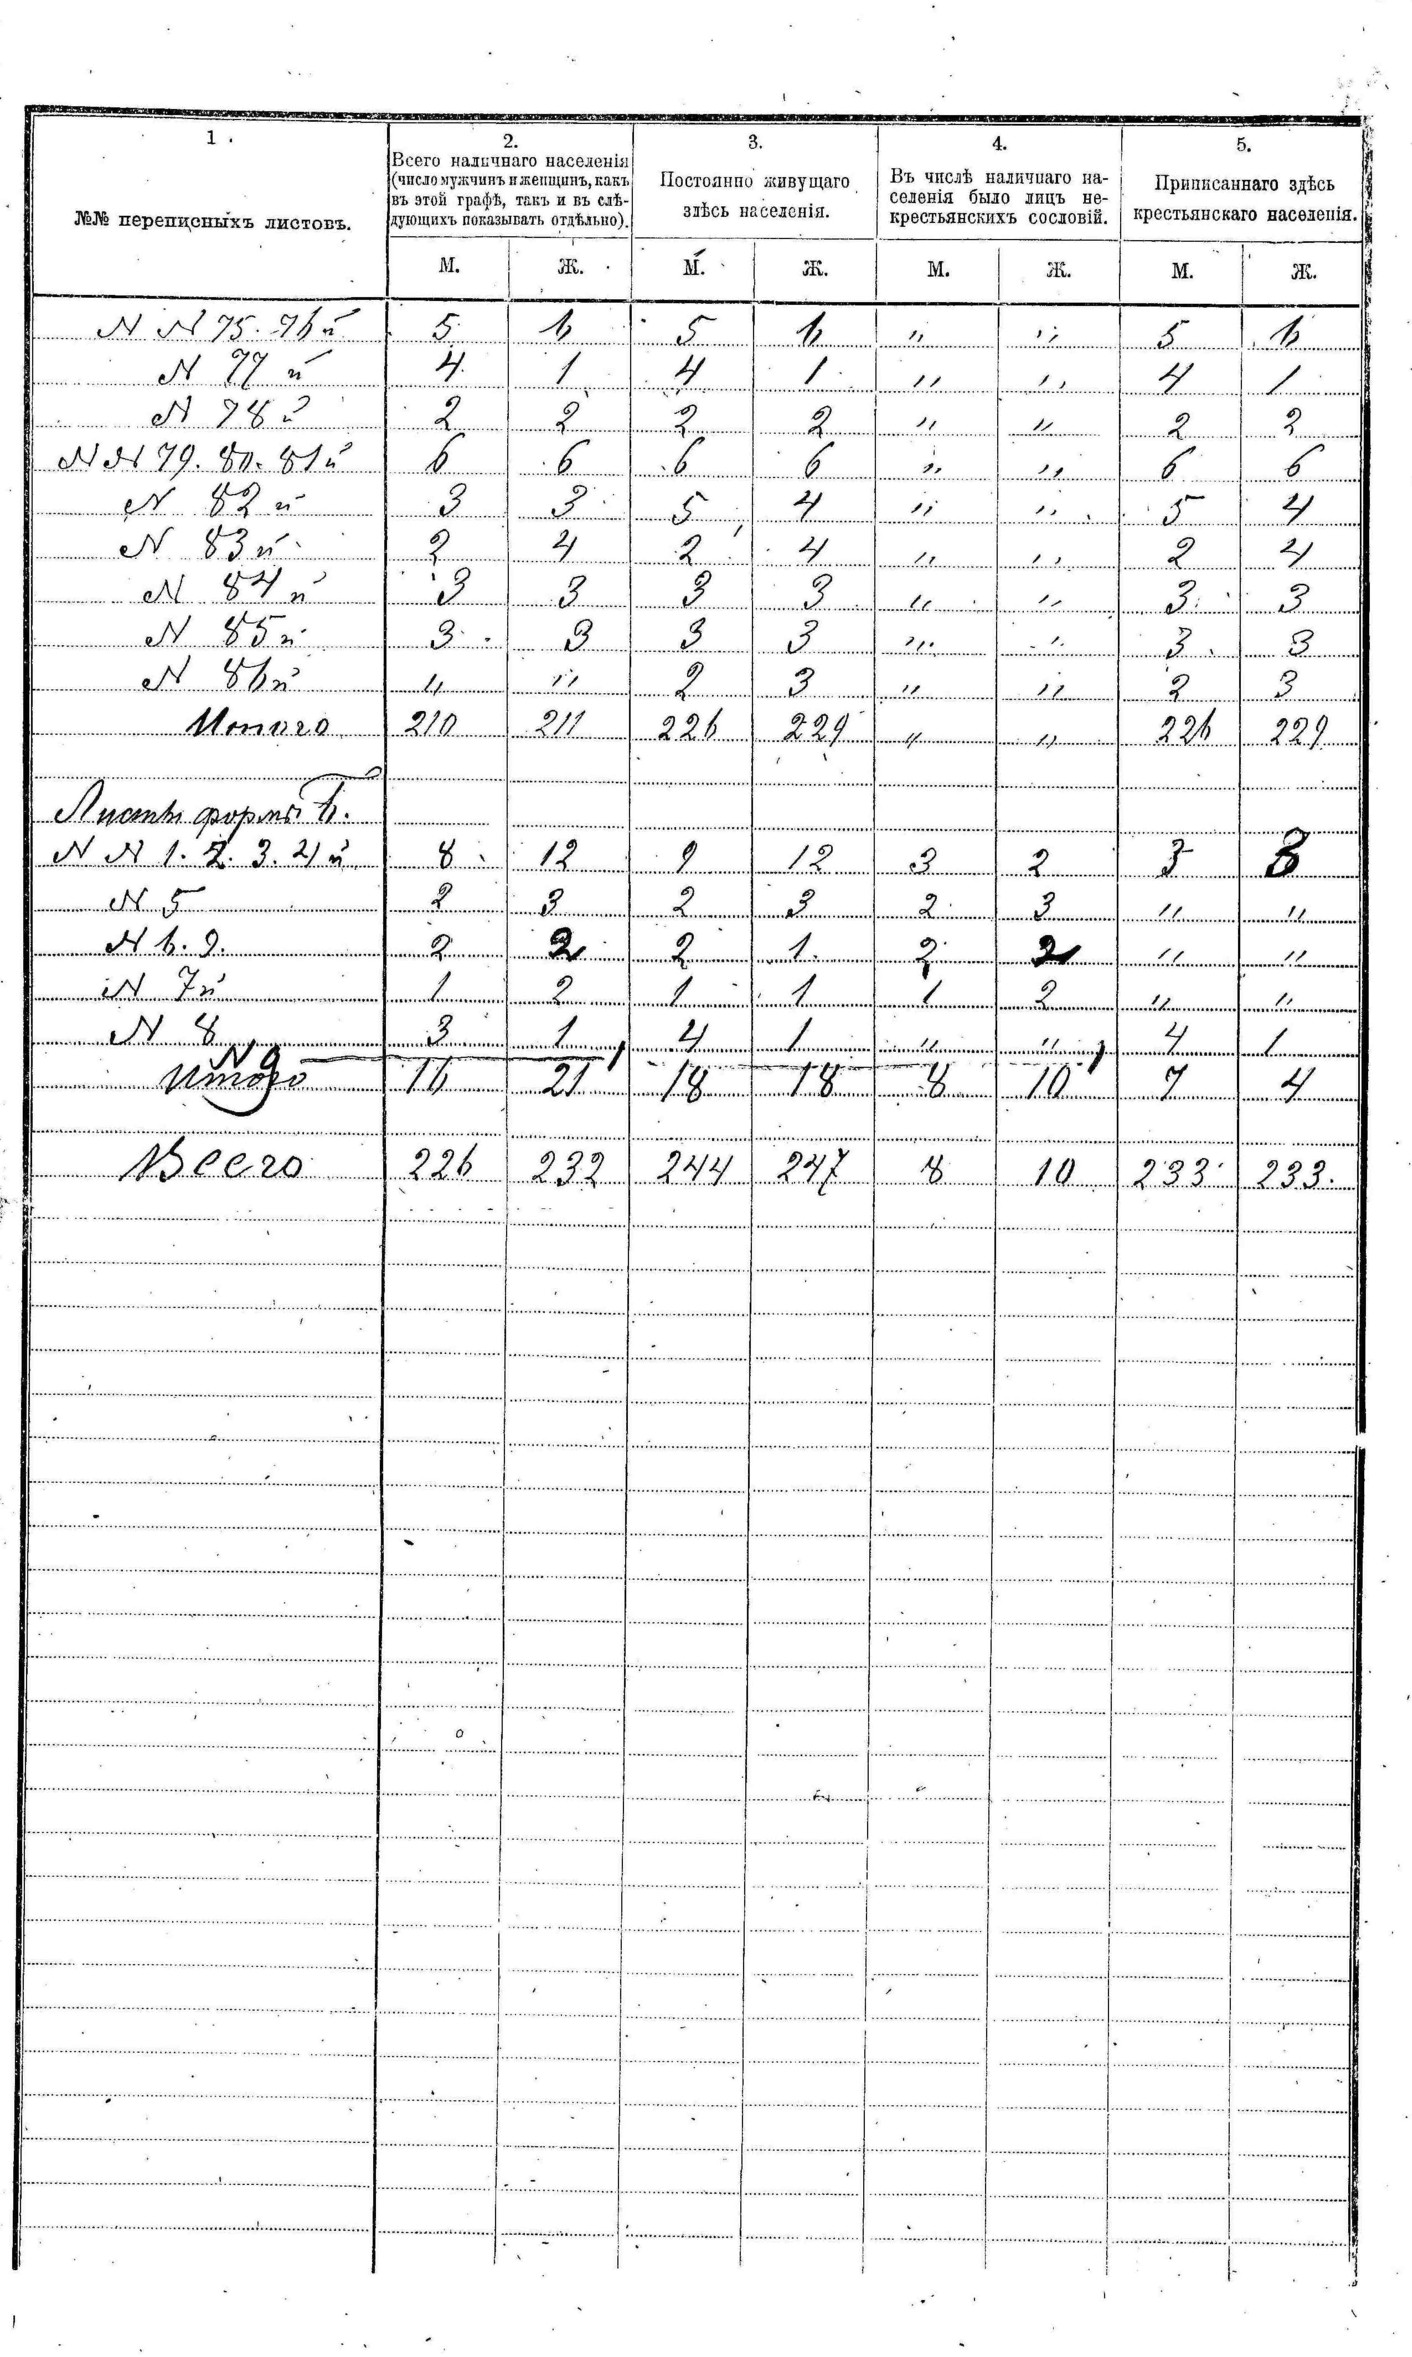 1. 2. 3. 4. 5.
№№ переписныхъ листовъ. Всего наличнаго населенія (число мужчинъ и женщинъ, какъ въ этой графѣ, такъ и въ слѣдующихъ показывать отдѣльно). Постоянно живущаго здѣсь населенія. Въ числѣ наличнаго населенія было лицъ некрестьянскихъ сословій. Приписаннаго здѣсь крестьянскаго населенія.
М. Ж. М. Ж. М. Ж. М. Ж.
N N 75. 76 й 5 6 5 6 " " 5 6
N 77 й 4 1 4 1 " " 4 1
N 78 й 2 2 2 2 " " 2 2
N N 79. 80. 81 й 6 6 6 6 " " 6 6
N 82 й 3 3 5 4 " " 5 4
N 83 й 2 4 2 4 " " 2 4
N 84 й 3 3 3 3 " " 3 3
N 85 й 3 3 3 3 " " 3 3
N 86 й " " 2 3 " " 2 3
Итого 210 211 226 229 " " 226 229
Листы формы Б.
N N 1. 2. 3. 4 й 8 12 9 12 3 2 3 3
N 5 2 3 2 3 2 3 " "
N 6. 9. 2 2 2 1 2 2 " "
N 7 й 1 2 1 1 1 2 " "
N 8 3 1 4 1 " " 4 1
N 9
Итого 16 21 18 18 8 10 7 4
Всего 226 232 244 247 8 10 233 233.